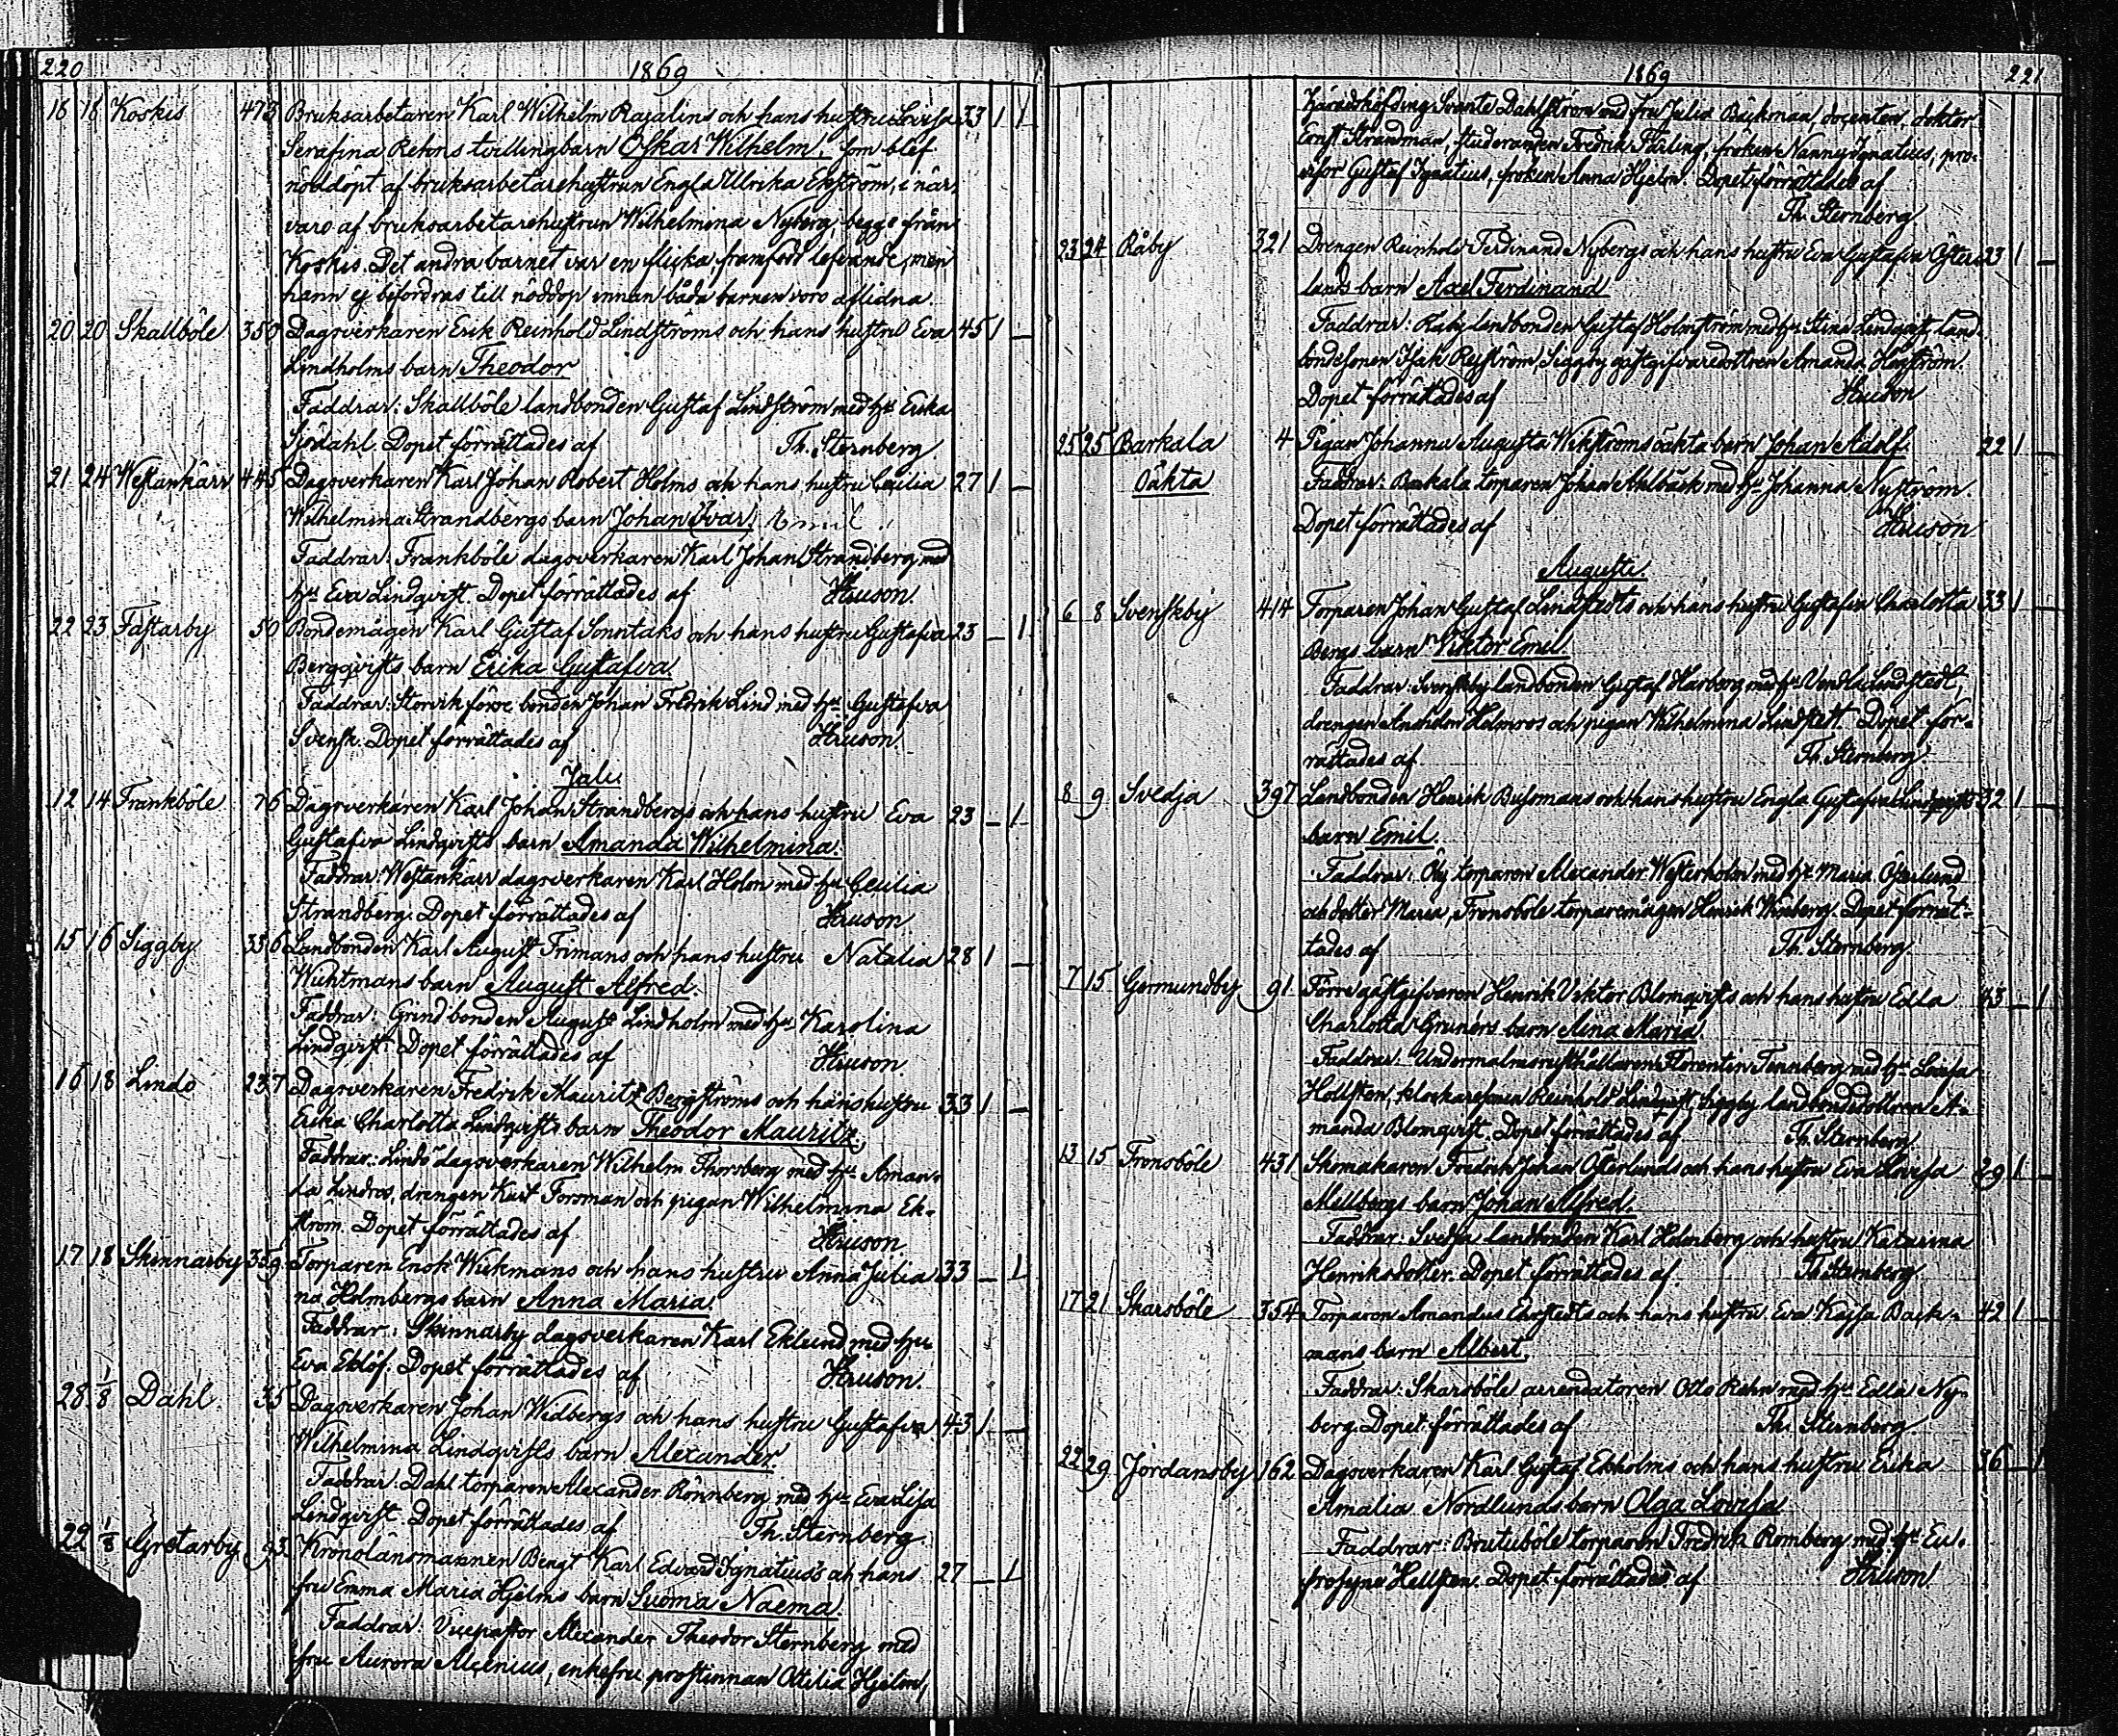 220 1869
16 18 Koskis 473 Bruksarbetaren Karl Wilhelm Rajalins och hans hustru Lovisa 33 1 1
Serafina Rehns tvillingbarn Oskar Wilhelm, som blef
nöddöpt af bruksarbetarehustrun Engla Ulrika Ekström, i när-
varo af bruksarbetarehustrun Wilhelmina Nyberg, begge från
Koskis. Det andra barnet var en flicka, framfödd lefvande, men
hann ej befordras till nöddop innan båda barnen voro aflidna.
20 20 Skallböle 350 Dagsverkaren Erik Reinhold Lindströms och hans hustru Eva 45 1 —
Lindholms barn Theodor
Faddrar: Skallböle landbonden Gustaf Lindström med hu Erika
Sjödahl. Dopet förrättades af Th. Sternberg
21 24 Westankärr 445 Dagsverkaren Karl Johan Robert Holms och hans hustru Cecilia 27 1 —
Wilhelmina Strandbergs barn Johan Ivar, Emil
Faddrar: Frankböle dagsverkaren Karl Johan Strandberg med
hu Eva Lindqvist. Dopet förrättades af
22 23 Fastarby 50 Bondemågen Karl Gustaf Sonntaks och hans hustru Gustafva 23 — 1
Bergqvists barn Erika Gustafva
Faddrar: Storvik förre bonden Johan Fredrik Lind med hu Gustafva
Svensk. Dopet förrättades af
Juli.
12 14 Frankböle 76 Dagsverkaren Karl Johan Strandbergs och hans hustru Eva 23 — 1
Gustafva Lindqvists barn Amanda Wilhelmina.
Faddrar: Westankärr dagsverkaren Karl Holm med hu Cecilia
Strandberg. Dopet förrättades af
15 16 Siggby 336 Landbonden Karl August Frimans och hans hustru Natalia 28 1 —
Wichtmans barn August Alfred.
Faddrar: Grind bonden August Lindholm med hu Karolina
Lindqvist. Dopet förrättades af
16 18 Lindö 237 Dagsverkaren Fredrik Mauritz Bergströms och hans hustru 33 1 —
Erika Charlotta Lindqvists barn Theodor Mauritz.
Faddrar: Lindö dagsverkaren Wilhelm Thorsberg med hu Aman-
da Lindros, drengen Karl Forsman och pigan Wilhelmina Ek-
ström. Dopet förrättades af
17 18 Skinnarby 359 Torparen Enok Wickmans och hans hustru Anna Julia- 33 — 1
na Holmbergs barn Anna Maria.
Faddrar: Skinnarby dagsverkaren Karl Eklund med hu
Eva Eklöf. Dopet förrättades af
28 1/8 Dahl 35 Dagsverkaren Johan Widbergs och hans hustru Gustafva 43 1 —
Wilhelmina Lindqvists barn Alexander.
Faddrar: Dahl torparen Alexander Rönnberg med hu Eva Lisa
Lindqvist. Dopet förrättades af Th. Sternberg.
22 1/8 Gretarby 93 Kronolänsmannen Bengt Karl Edvard Ignatius's och hans 27 — 1
fru Emma Maria Hjelms barn Suoma Naema.
Faddrar: Vicepastor Alexander Theodor Sternberg med
fru Aurora Alcenius, enkefru prostinnan Ottilia Hjelm,
1869 221
häradshöfding Svante Dahlström med fru Julia Bäckman, docenten, doktor
Ernst Strandman, studeranden Fredrik Färling, fröken Nanny Ignatius, pro-
visor Gustaf Ignatius, fröken Anna Hjelm. Dopet förrättades af
Th. Sternberg
23 24 Råby 321 Drengen Reinhold Ferdinand Nybergs och hans hustru Eva Gustafva Öster- 23 1 —
lunds barn Axel Ferdinand
Faddrar: Råby landbonden Gustaf Holmström med hu Stina Lindqvist, land-
bondesonen Isak Nyström, Siggby gästgifvaredottren Amanda Hagström.
Dopet förrättades af
25 25 Barkala 4 Pigan Johanna Augusta Wikströms oäkta barn Johan Adolf. 22 1
Oäkta Faddrar: Barkala torparen Johan Ahlbäck med hu Johanna Nyström.
Dopet förrättades af
Augusti.
6 8 Svenskby 414 Torparen Johan Gustaf Lindstedts och hans hustru Gustafva Charlotta 33 1 —
Bergs barn Viktor Emil.
Faddrar: Svenskby landbonden Gustaf Harberg med hu Vendla Lindstedt,
drengen Holmros och pigan Wilhelmina Lindstedt. Dopet för-
rättades af Th. Sternberg.
8 9 Svedja 397 Landbonden Henrik Bussmans och hans hustru Engla Gustafva Lindqvists 32 1 —
barn Emil.
Faddrar: Öby torparen Alexander Westerholm med hu Maria Österlund
och dotter Maria, Fronsböle torparemågen Henrik Winberg. Dopet förrät-
tades af Th. Sternberg.
7 15 Germundby 91 Förre gästgifvaren Henrik Viktor Blomqvists och hans hustru Edla 43 — 1
Charlotta Gruners barn Aina Maria
Faddrar: Undermalms rusthållaren Florentin Tennberg med hu Lovisa
Hollsten, klockaresonen Reinhold Lindqvist, Siggby landbondedottren A-
manda Blomqvist. Dopet förrättades af Th. Sternberg
13 15 Fronsböle 431 Skomakaren Fredrik Johan Österlunds och hans hustru Eva Lovisa 29 1 —
Mellbergs barn Johan Alfred.
Faddrar: Svedja landbonden Karl Holmberg och hustru Katarina
Henriksdotter. Dopet förrättades af Th. Sternberg
17 21 Skarsböle 354 Torparen Amandus Ekestedts och hans hustru Eva Kajsa Back- 42 1 —
mans barn Albert.
Faddrar: Skarsböle arrendatoren Otto Rehn med hu Edla Ny-
berg. Dopet förrättades af Th. Sternberg.
22 29 Jordansby 162 Dagsverkaren Karl Gustaf Ekholms och hans hustru Erika 36 — 1
Amalia Nordlunds barn Olga Lovisa
Faddrar: Brutuböle torparen Fredrik Romberg med hu Eu-
frosyne Hellsten. Dopet förrättades af